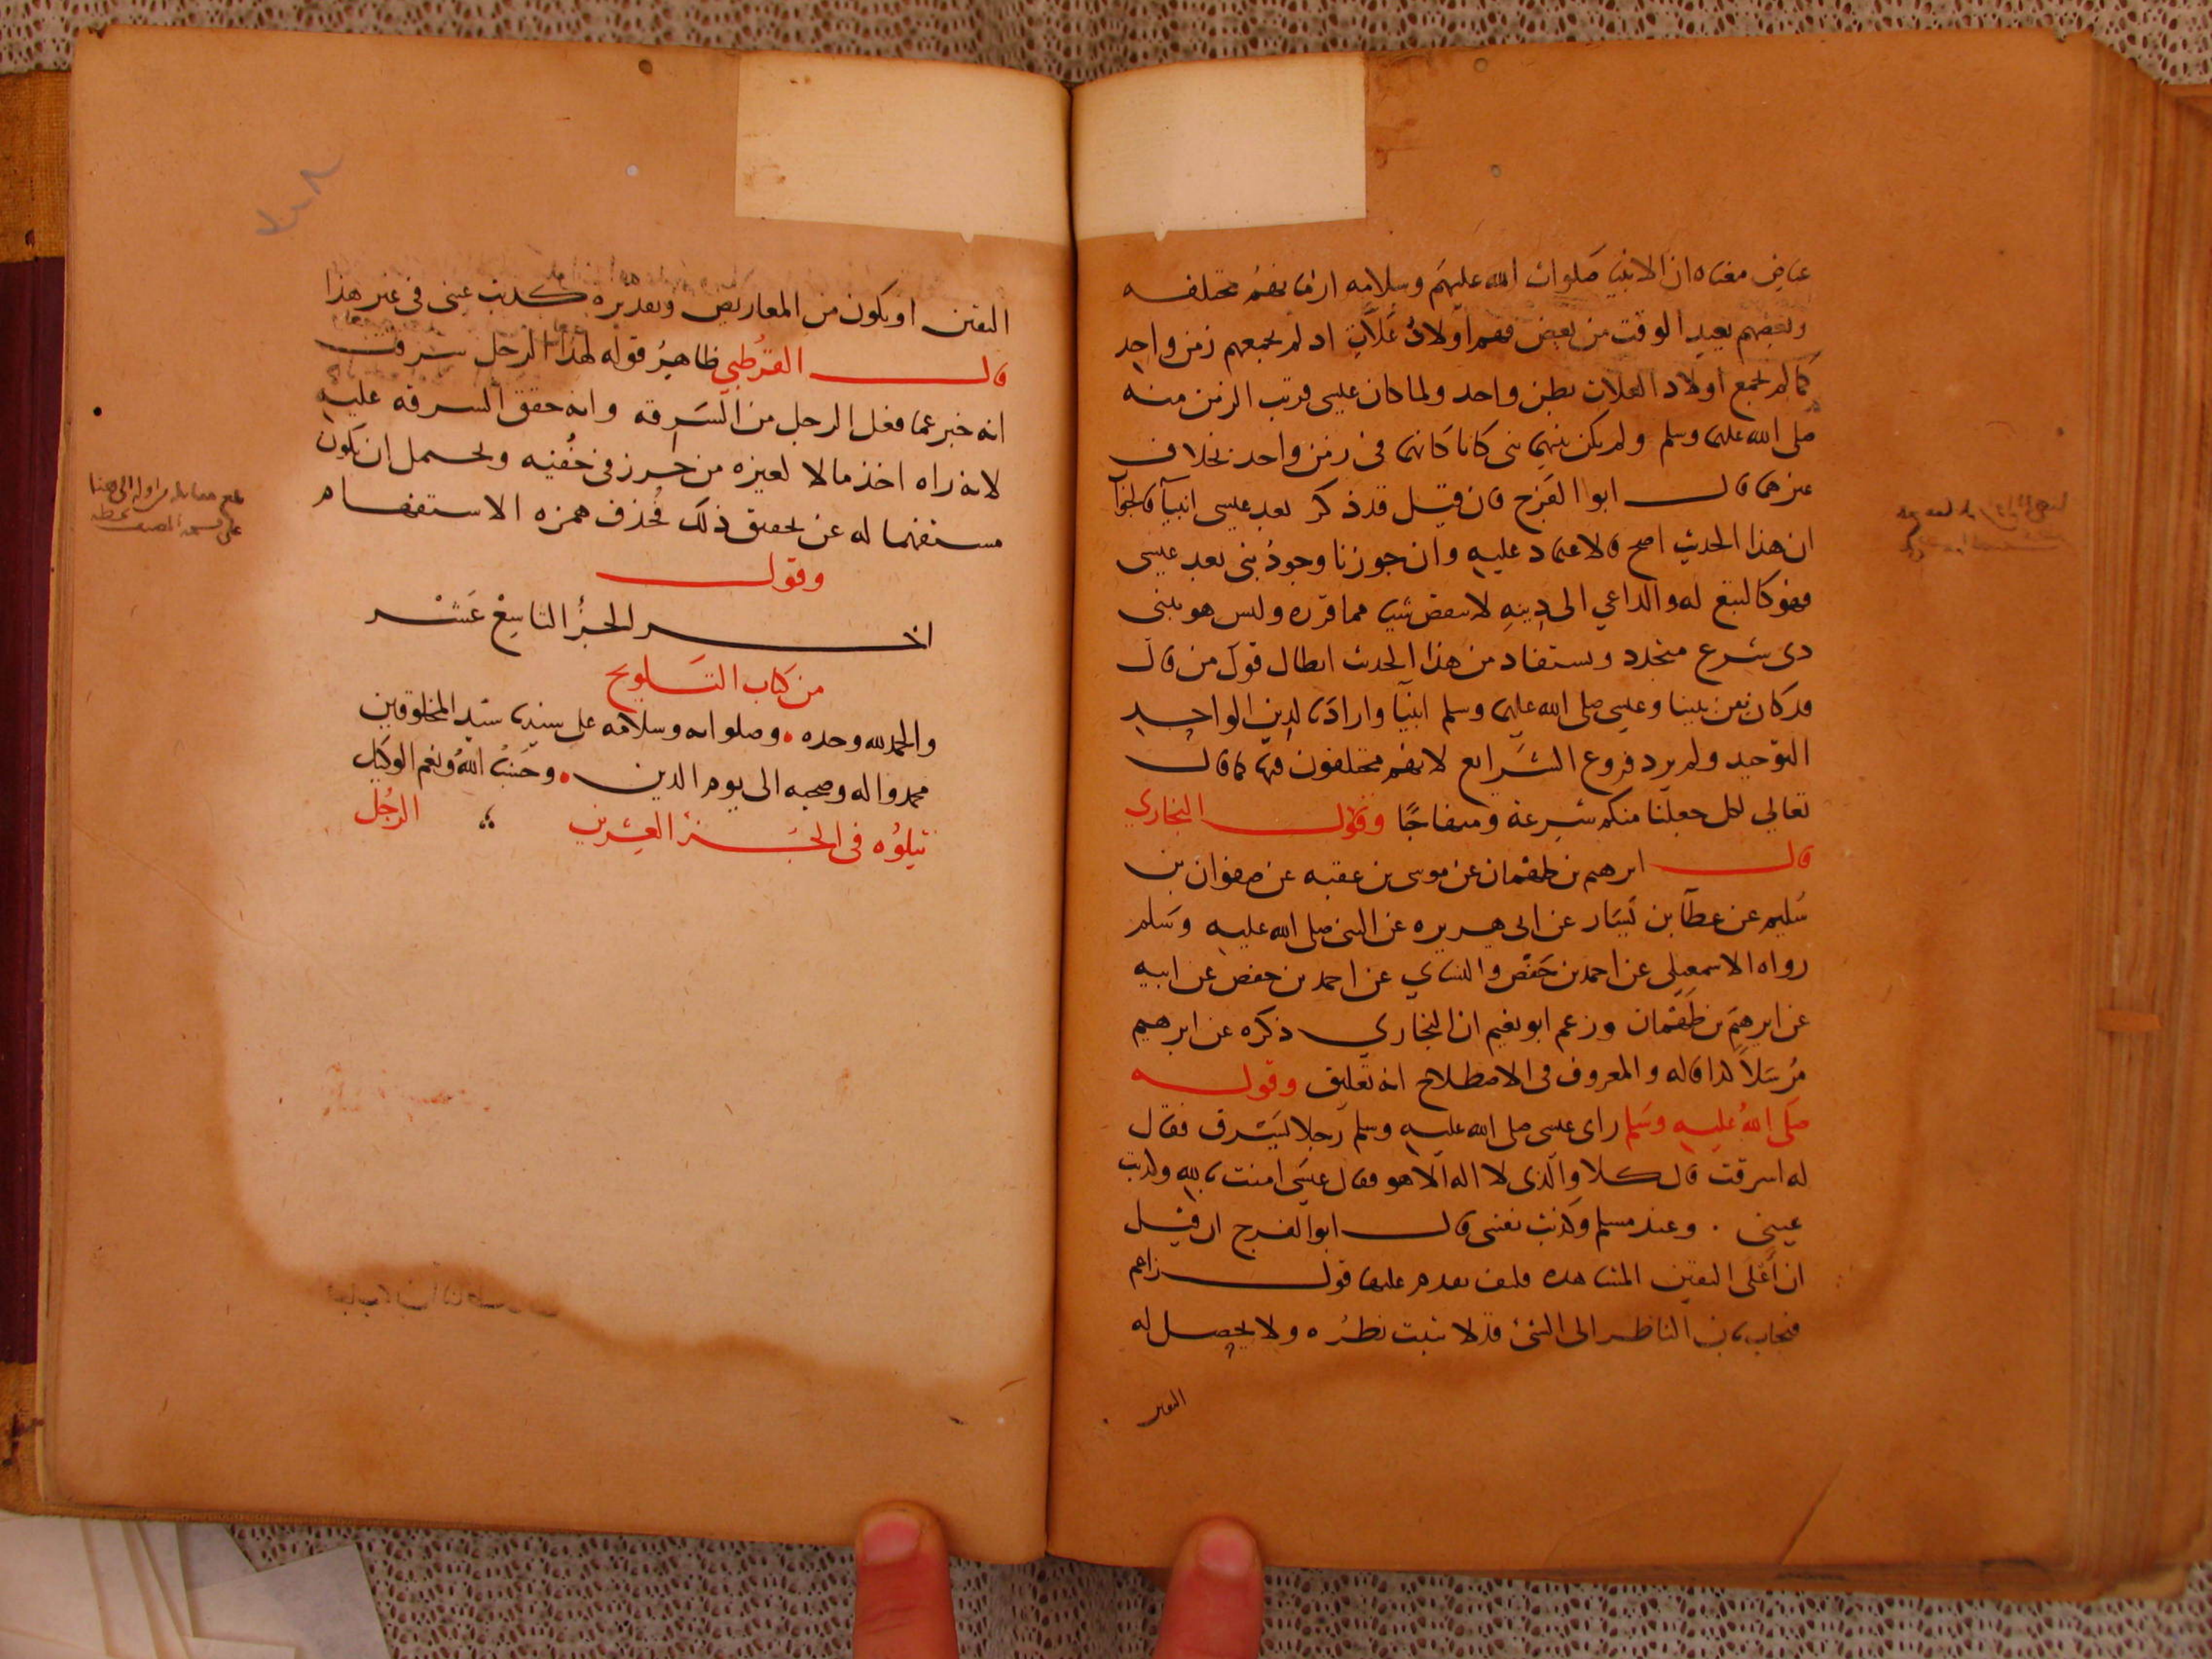 عياض معناه ان الانبيا صلوات الله عليهم وسلامه ازمانهم مختلفه
وبعضهم بعيد الوقت من بعض فهم اولاد علات اذ لم يجمعهم زمن واحد
كما لم يجمع اولاد العلات بطن واحد ولما كان عيسى قريب الزمن منه
صلى الله عليهما وسلم ولم يكن بينهما نبى كانا كانهما فى زمن واحد بخلاف
غيرهما قال ابو الفرج فان قيل قد ذكر بعد عيسى انبيآ فالجواب
ان هذا الحديث اصح فالاعتماد عليه وان جوزنا وجود نبى بعد عيسى
فهو كالتبع له والداعي الى دينه لا ينقض شيا مما قرره وليس هو بنبى
ذى شرع متجدد ويستفاد من هذا الحديث ابطال قول من قال
قد كان بين نبينا وعيسى صلى الله عليهما وسلم انبيآ واراد بالدين الواحد
التوحيد ولم يرد فروع الشرايع لانهم مختلفون فيها كما قال
تعالي لكل جعلنا منكم شرعة ومنهاجا وقول البخاري
قال ابرهيم بن طهمان عن موسى بن عقبه عن صفوان بن
سليم عن عطآ بن يسار عن ابى هريره عن النبى صلى الله عليه وسلم
رواه الاسمعيلى عن احمد بن حفص والنساي عن احمد بن حفص عن ابيه
عن ابرهيم بن طهمان وزعم ابو نعيم ان البخاري ذكره عن ابرهيم
مرسلا كذا قاله والمعروف فى الاصطلاح انه تعليق وقوله
صلى الله عليه وسلم راى عيسى صلى الله عليه وسلم رجلا يسرق فقال
له اسرقت قال كلا والذى لا اله الا هو فقال عيسى امنت بالله وكذبت
عيني . وعند مسلم وكذبت نفسى قال ابو الفرج ان قيل
ان اعلى اليقين المشاهده فكيف يقدم عليها قول زاعم
فيجاب بان الناظر الى الشئ قد لا يثبت نظره ولا يحصل له
اليقين
اليقين او يكون من المعاريض وتقديره كذبت عينى فى غير هذا
قال القرطبي ظاهر قوله لهذا الرجل سرقت
انه خبر عما فعل الرجل من السرقه وانه حقق السرقه عليه
لانه راه اخذ مالا لغيره من حرز فى خفيه ويحتمل ان يكون
مستفهما له عن تحقيق ذلك فحذف همزه الاستفهام
وقول
اخر الجزء التاسع عشر
من كتاب التلويح
والحمد لله وحده • وصلواته وسلامه على سيدنا سيد المخلوقين
محمد واله وصحبه الى يوم الدين • وحسبنا الله ونعم الوكيل
يتلوه فى الجزء العشرين الرجل
بلغ مقابله من اوله الى هنا
على نسخة المصنف بخطه